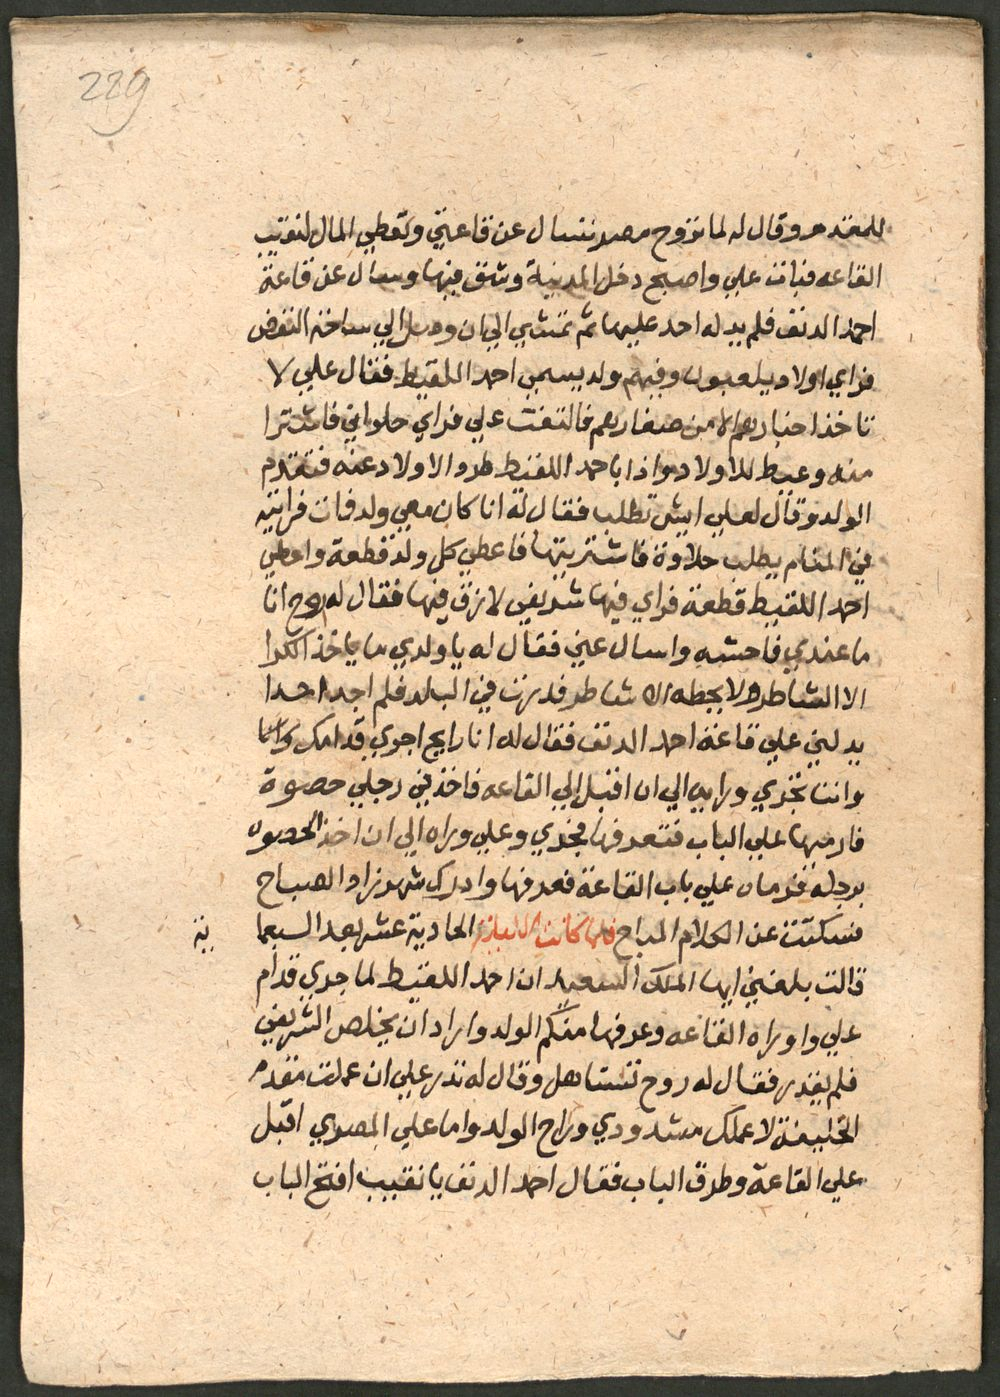 229
للمقدم وقال له لما تروح مصر نسال عن قاعتي وتعطي المال لنقيب
القاعه فبات علي واصبح دخل المدينة وشق فيها وسال عن قاعة
احمد الدنف فلم يدله احد عليها ثم تمشي الي ان وصل الي ساحة النفض
فراي اولاد يلعبون وفيهم ولد يسمي احمد اللقيط فقال علي لا
تاخذ اخبارهم الا من صغارهم فالتفت علي فراي حلواني فاشترا
منه وعيط للاولاد واذا باحمد اللقيط طرد الاولاد عنه فتقدم
الولد وقال لعلي ايش تطلب فقال له انا كان معي ولد فات فرايته
في المنام يطلب حلاوة فاشتريتها فاعطي كل ولد قطعة واعطي
احمد اللقيط قطعة فراي فيها شريفي لازق فيها فقال له روح انا
ما عندي فاحشه واسال عني فقال له يا ولدي ما ياخذ الكرا
الا الشاطر ولا يحطه الا شاطر فدرت في البلد فلم اجد احدا
يدلني علي قاعة احمد الدنف فقال له انا رايح اجري قدامك وانا
وانت تجري ورايي الي ان اقبل الي القاعه فاخذ في رجلي حصوة
فارميها علي الباب فتعرفها فجري وعلي وراه الي ان اخذ الحصوه
برجله فرماه علي باب القاعة فعرفها وادرك شهرزاد الصباح
فسكتت عن الكلام المباح فلما كانت الليلة الحادية عشر بعد السبعما
ية
قالت بلغني ايها الملك السعيد ان احمد اللقيط لما جري قدام
علي واوراه القاعه وعرفها مسكم الولد واراد ان يخلص الشريفي
فلم يقدر فقال له روح تستاهل وقال له ندر علي ان عملت مقدم
الخليفة لاعملك مشدودي وراح الولد واما علي المصري اقبل
علي القاعة وطرق الباب فقال احمد الدنف يا نقيب افتح الباب